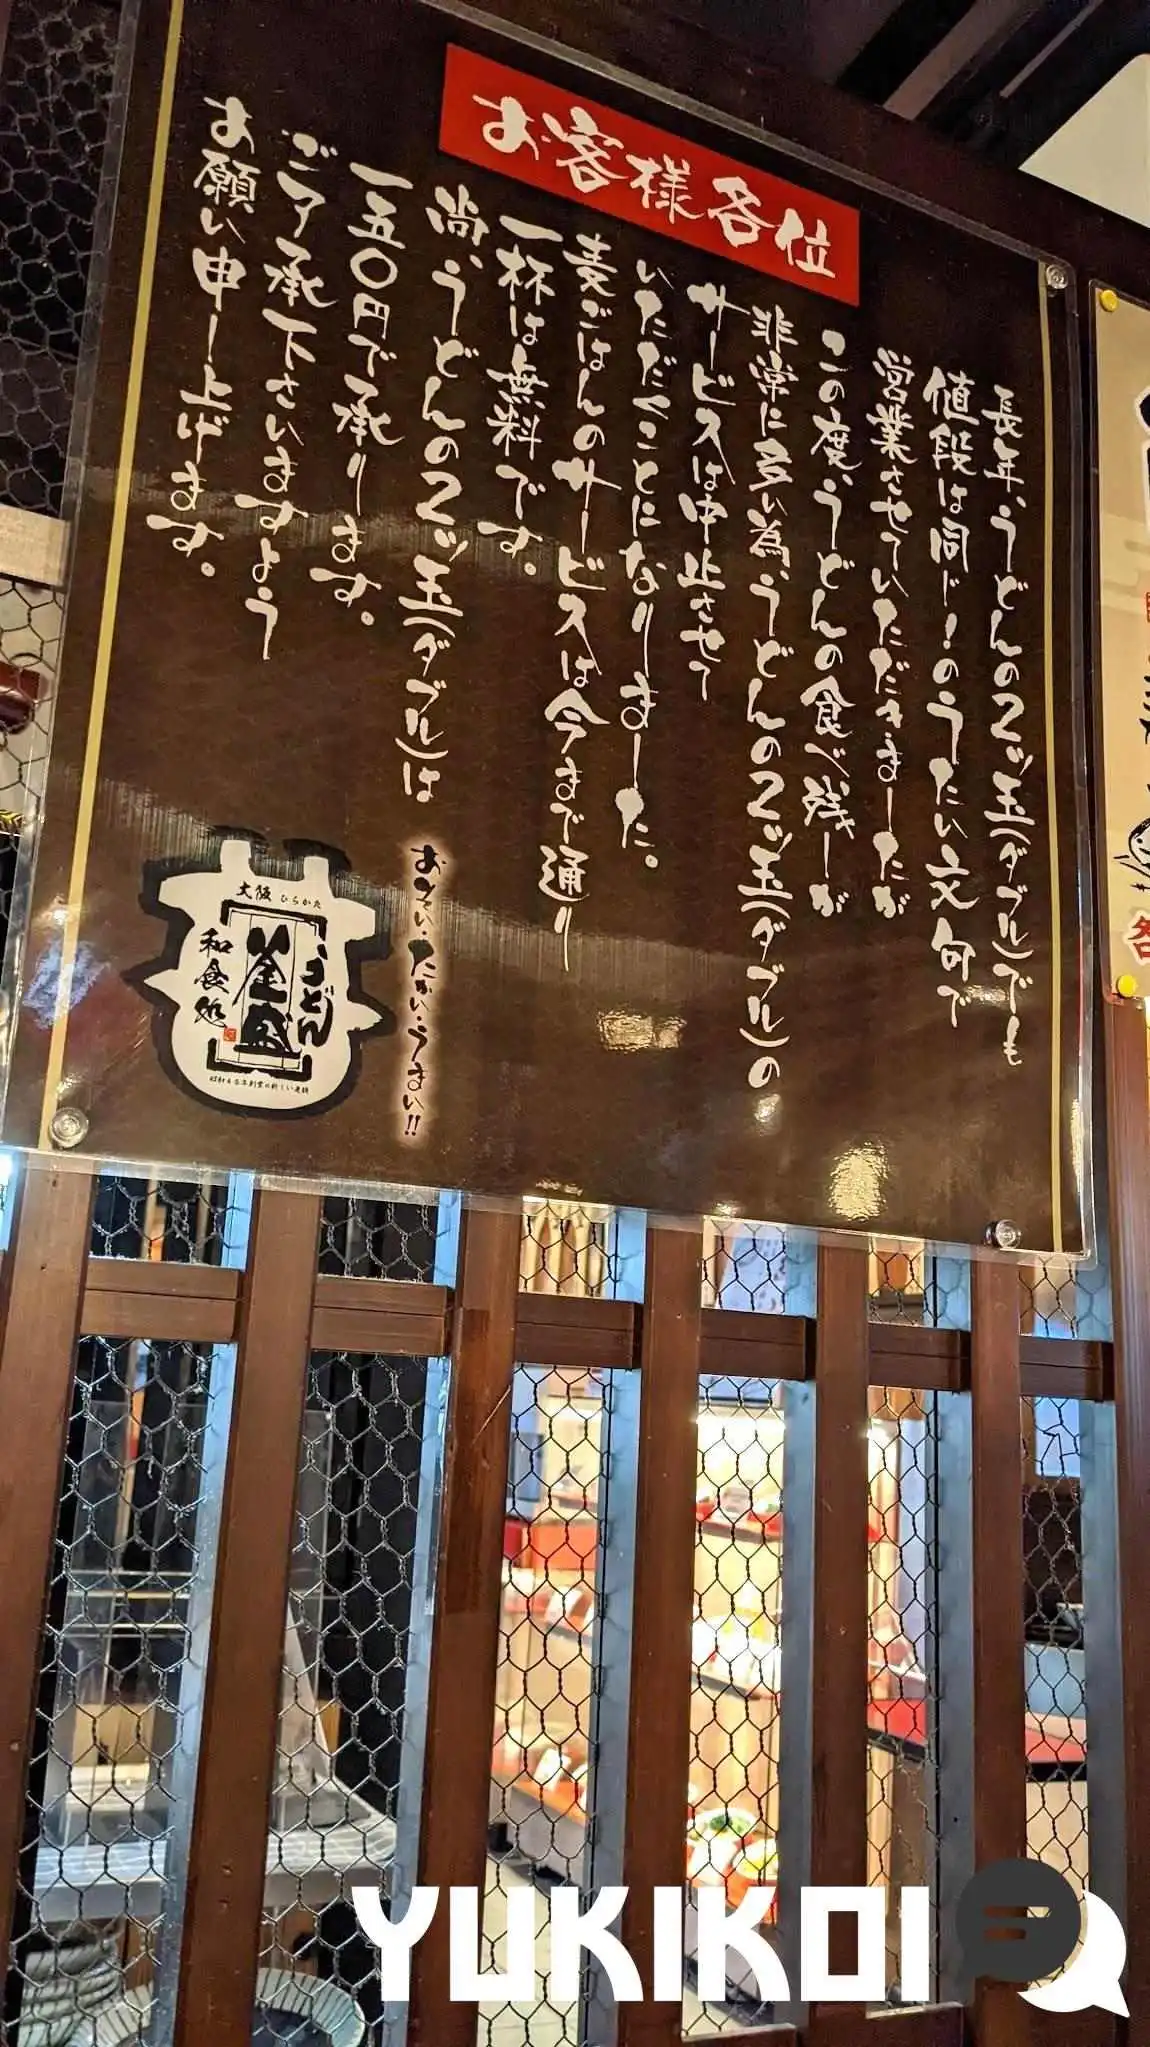 お客様各位
長年、うどんの2ッ玉(ダブル)でも
値段は同じ!のうたい文句で
営業させていただきましたが
この度、うどんの食べ残しが
非常に多い為、うどんの2ッ玉(ダブル)の
サービスは中止させて
いただくことになりました。
麦ごはんのサービスは今まで通り
一杯は無料です。
尚、うどんの2ッ玉(ダブル)は
一五〇円で承ります。
ご了承下さいますよう
お願い申し上げます。
おそい・たかい・うまい!!
大阪 ひらかた
うどん
釜盛
和食処
YUKIKOI